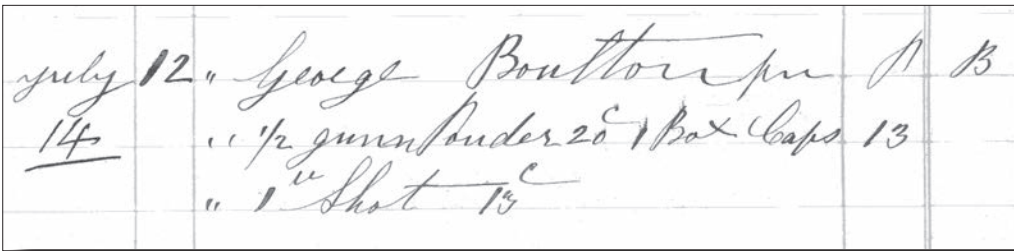 July 12 " George Boulton pr A B
14 " 1/2 gunn Pouder 20c 1 Box Caps 13
" 1 lb Shot 13c